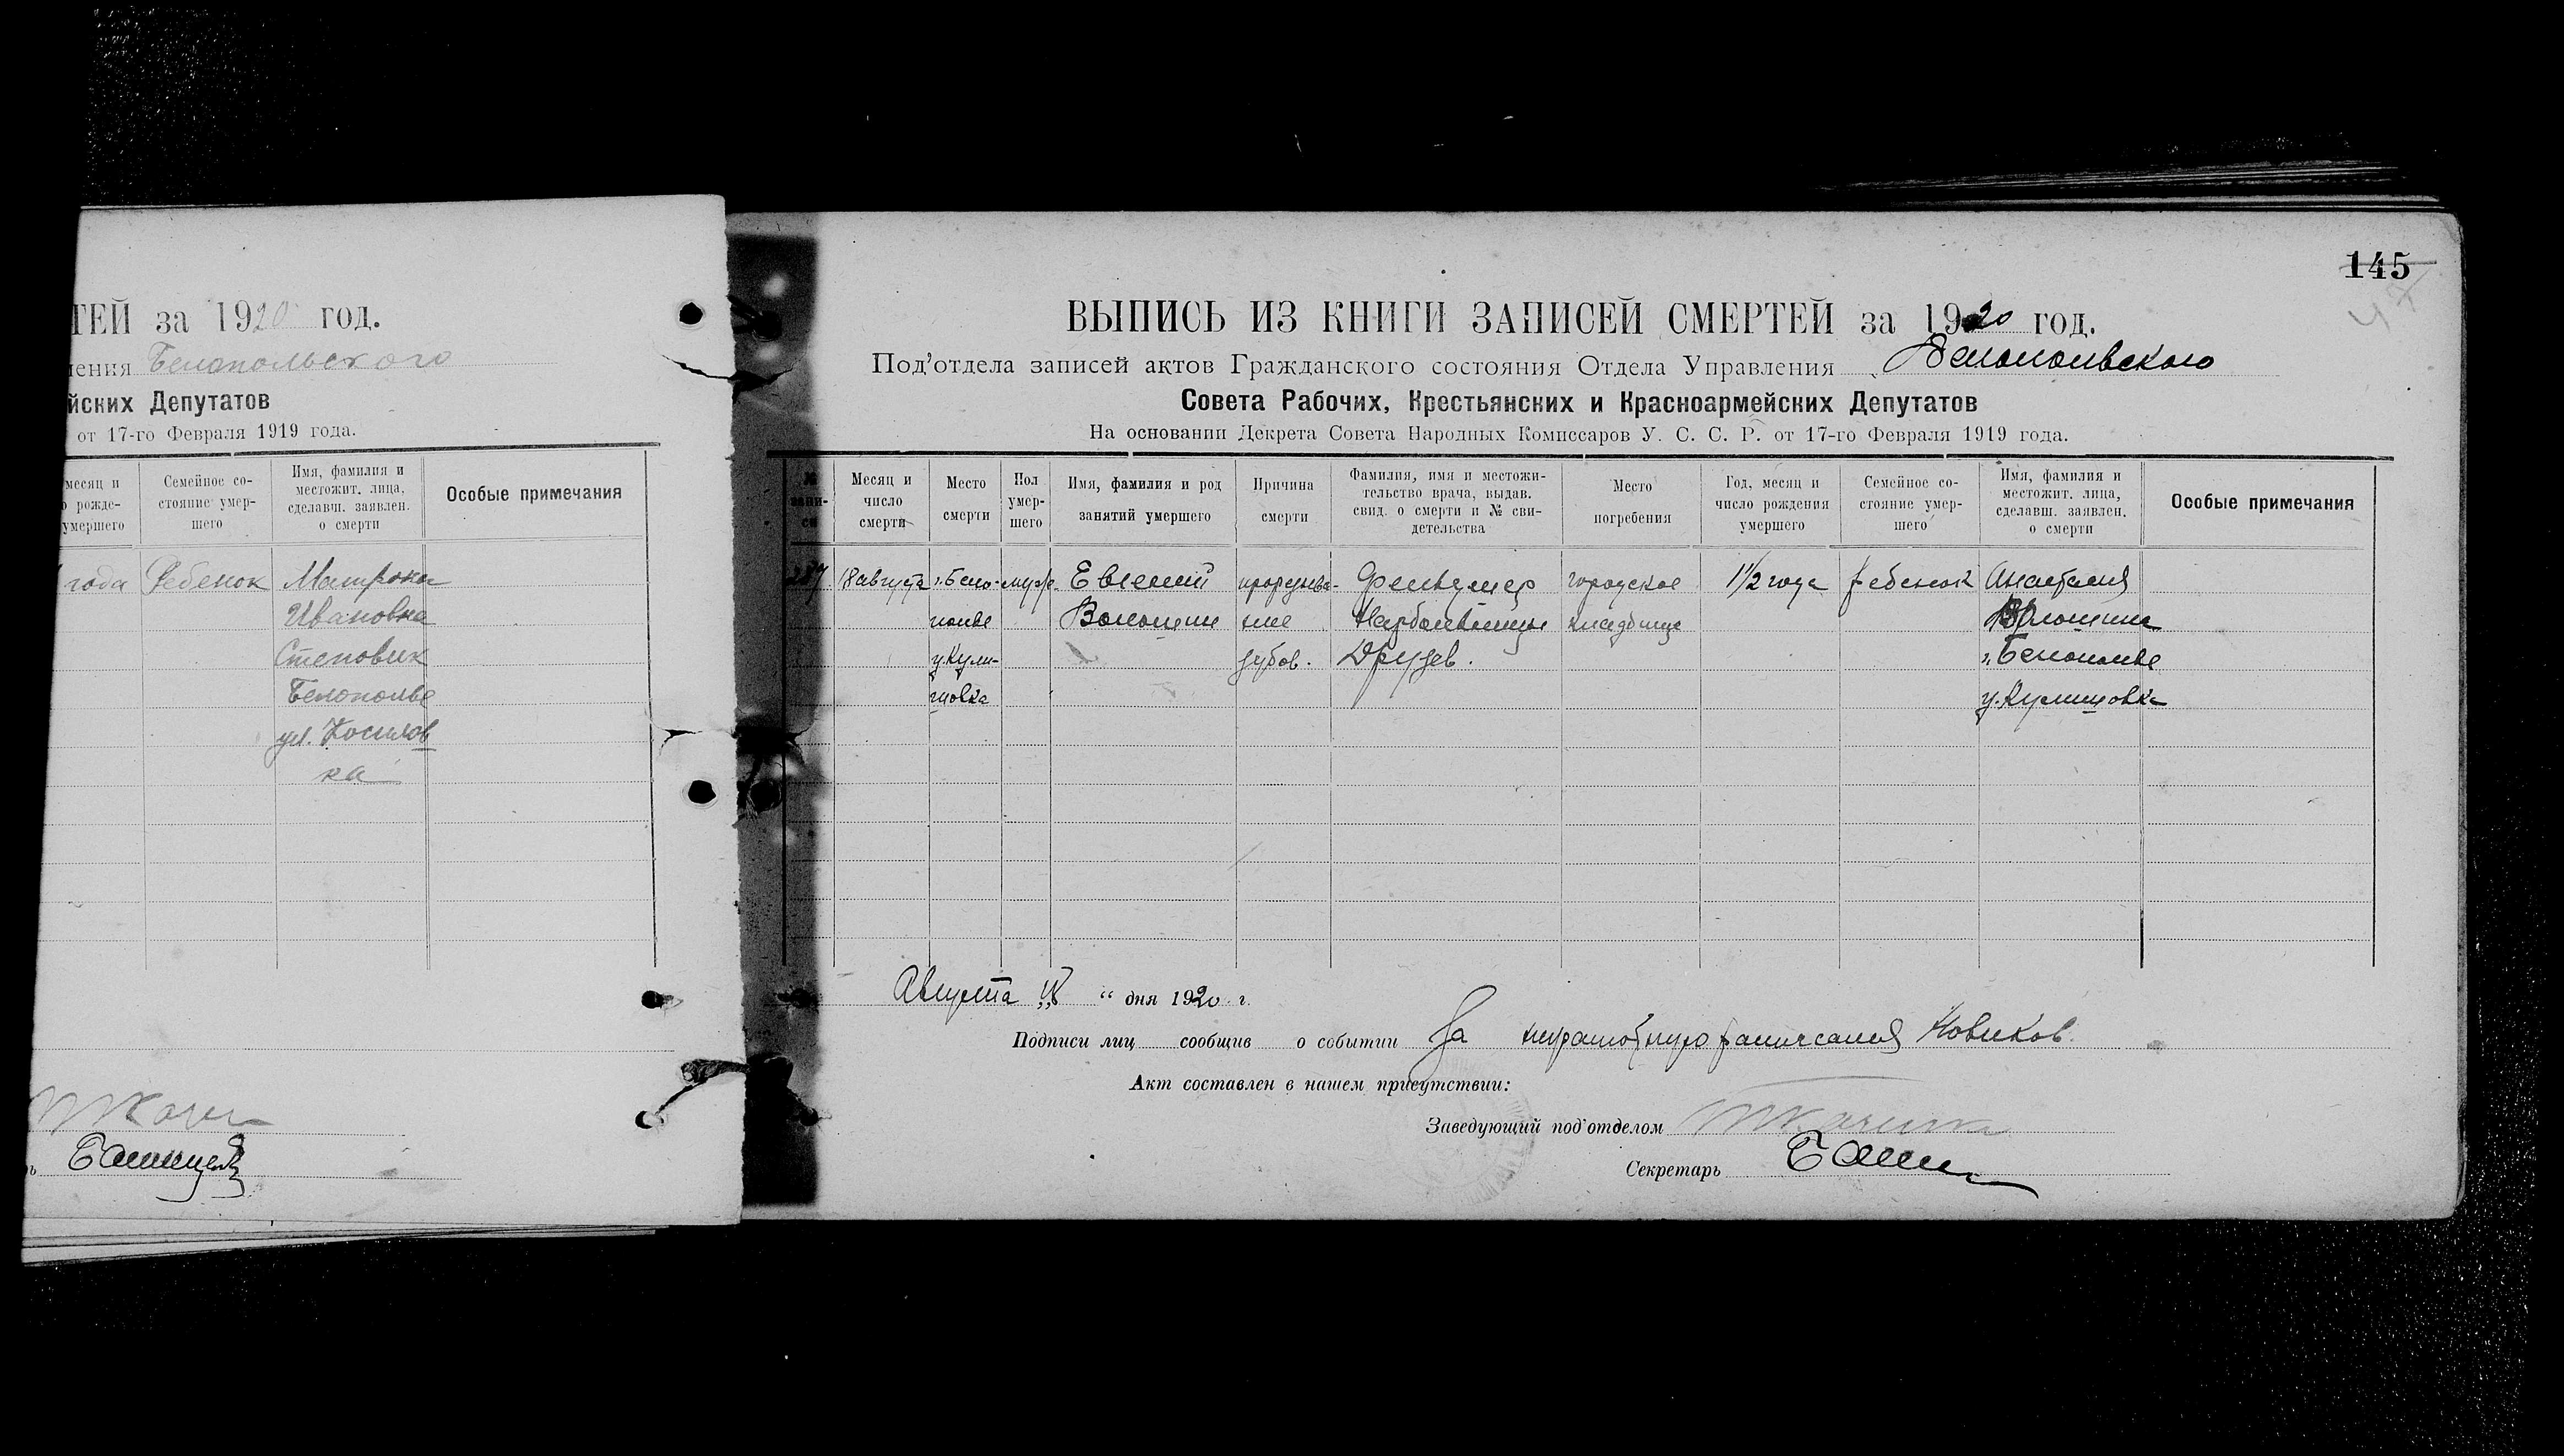 ТЕЙ за 1920 год.
ления Белопольского
йских Депутатов
от 17-го Февраля 1919 года.
месяц и
о рожде-
умершего
Семейное со-
стояние умер-
шего
Имя, фамилия и
местожит. лица,
сделавш. заявлен.
о смерти
Особые примечания
года
Ребенок
Матрона
Ивановна
Степовик
Белополье
ул.
ка
145
47
ВЫПИСЬ ИЗ КНИГИ ЗАПИСЕЙ СМЕРТЕЙ за 1920 год.
Под'отдела записей актов Гражданского состояния Отдела Управления Белопольского
Совета Рабочих, Крестьянских и Красноармейских Депутатов
На основании Декрета Совета Народных Комиссаров У. С. С. Р. от 17-го Февраля 1919 года.
№
запи-
си
Месяц и
число
смерти
Место
смерти
Пол
умер-
шего
Имя, фамилия и род
занятий умершего
Причина
смерти
Фамилия, имя и местожи-
тельство врача, выдав.
свид. о смерти и № сви-
детельства
Место
погребения
Год, месяц и
число рождения
умершего
Семейное со-
стояние умер-
шего
Имя, фамилия и
местожит. лица,
сделавш. заявлен.
о смерти
Особые примечания
287
18 августа
г. Бело-
полье
у. Кули-
шовка
муж.
Евгений
Волошин
прорезыва-
ние
зубов.
Фельдшер
Друзев.
городское
кладбище
1 1/2 года
ребенок
Анастасия
Волошина
г. Белополье
у. Кулишовка
Августа „18“ дня 1920 г.
Подписи лиц сообщив о событии За неграмотную расписался Новиков.
Акт составлен в нашем присутствии:
Заведующий под'отделом
Секретарь